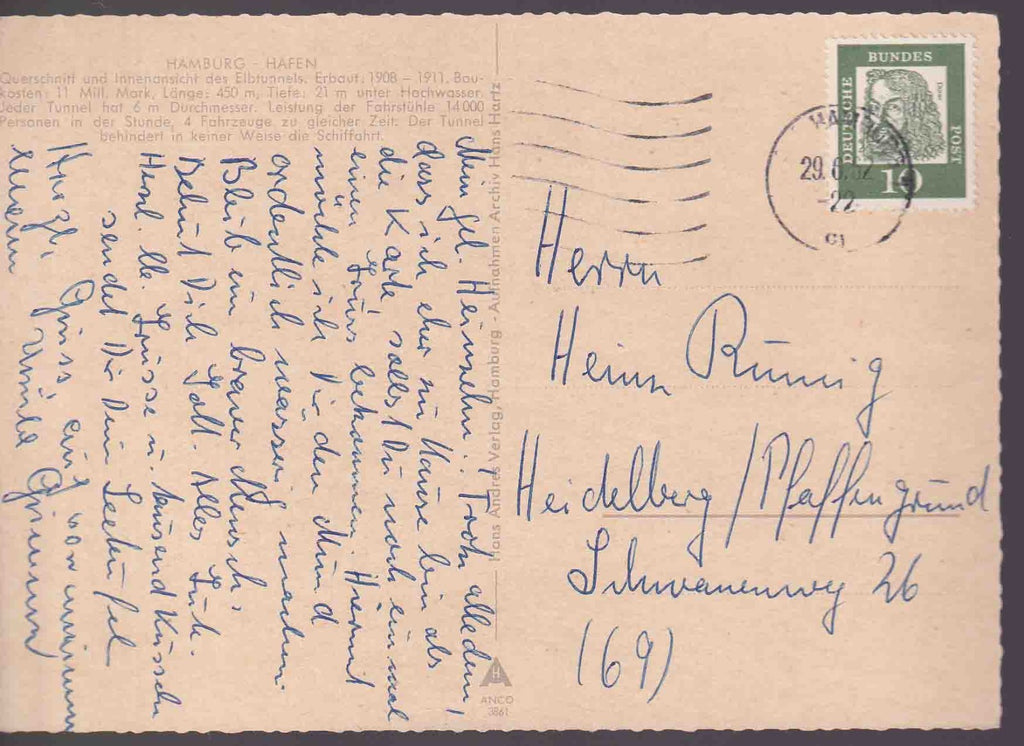 HAMBURG - HAFEN
Querschnitt und Innenansicht des Elbtunnels. Erbaut: 1908 – 1911. Bau-
kosten: 11 Mill. Mark, Länge: 450 m, Tiefe: 21 m unter Hochwasser.
Jeder Tunnel hat 6 m Durchmesser. Leistung der Fahrstühle 14000
Personen in der Stunde, 4 Fahrzeuge zu gleicher Zeit. Der Tunnel
behindert in keiner Weise die Schiffahrt.
Mein gel. Heinzelm.! Trotz alledem,
dass ich eher zu Hause bin als
die Karte, sollst Du noch einmal
einen Gruss bekommen. Hiermit
möchte ich Dir den Mund
ordentlich wässrig machen.
Bleib ein braver Mensch.
Behüt Dich Gott. Alles Gute.
Herzl. lb. Grüsse u. tausend Küsschen
sendet Dir Dein
Herzl. Gruss auch von
Hans Andres Verlag, Hamburg - Aufnahmen Archiv Hans Hartz
ANCO
3861
DEUTSCHE
BUNDES
POST
10
29.6.62
-22
Herrn
Heinz
Heidelberg/Pfaffengrund
Schwanenweg 26
(69)